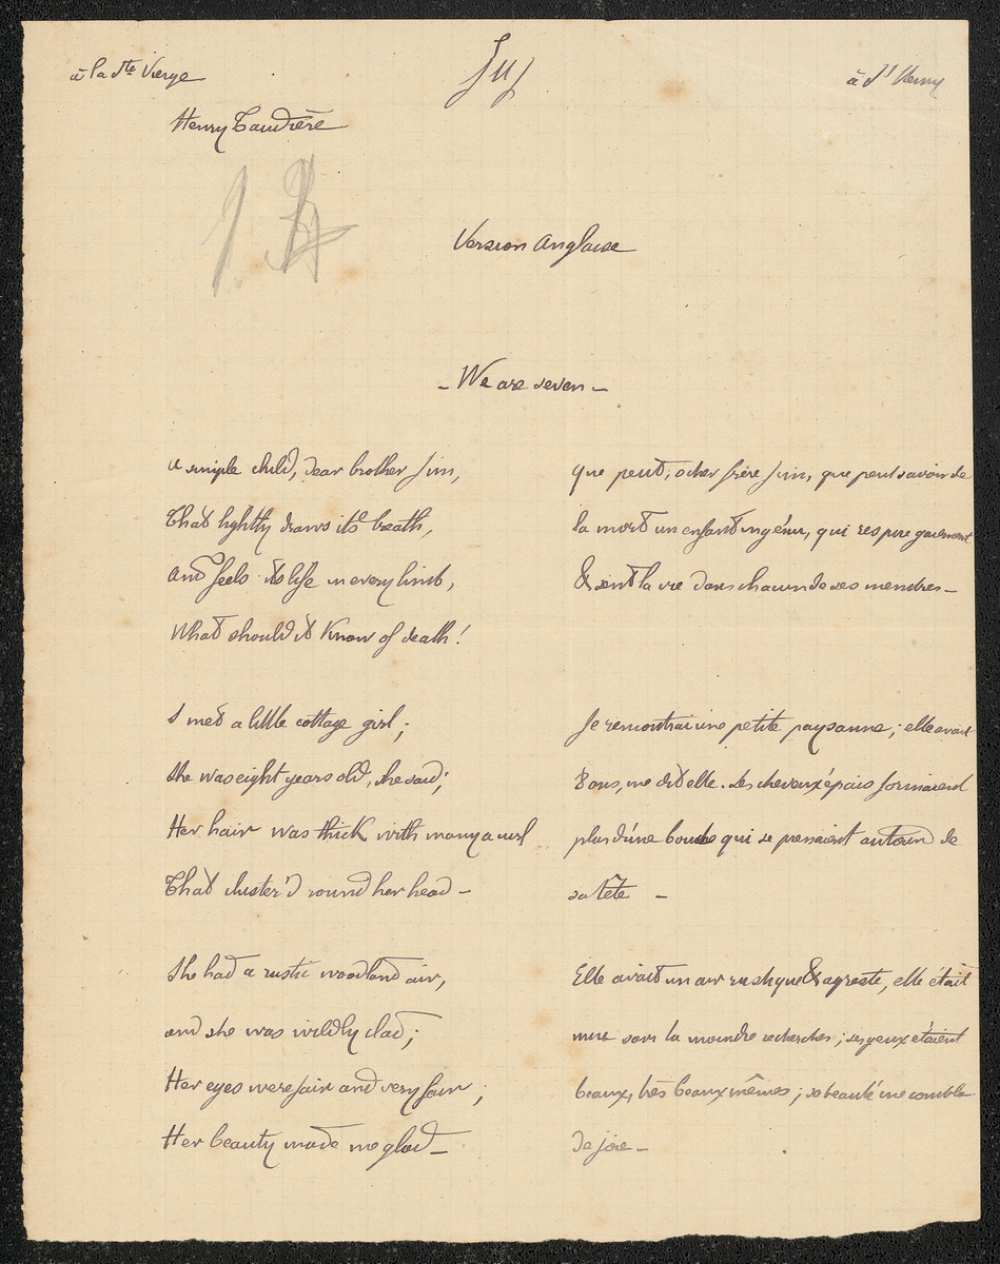 à la Ste Vierge
à St Henry
Henry Taudière
Version Anglaise
- We are seven -
A simple child, dear brother Jim,
That lightly draws its breath,
And feels its life in every limb,
What should it know of death!
I met a little cottage girl;
She was eight years old, she said;
Her hair was thick with many a curl
That cluster'd round her head -
She had a rustic woodland air,
and she was wildly clad;
Her eyes were fair and very fair;
Her beauty made me glad -
Que peut, o cher frère Jim, que peut savoir de
la mort un enfant ingénu, qui respire gaiement
& sent la vie dans chacun de ses membres -
Je rencontrai une petite paysanne; elle avait
8 ans, me dit elle. Ses cheveux épais formaient
plus d'une boucle qui se pressaient autour de
sa tête -
Elle avait un air rustique & agreste, elle était
mise sans la moindre recherche; ses yeux étaient
beaux, très beaux mêmes; sa beauté me combla
de joie -